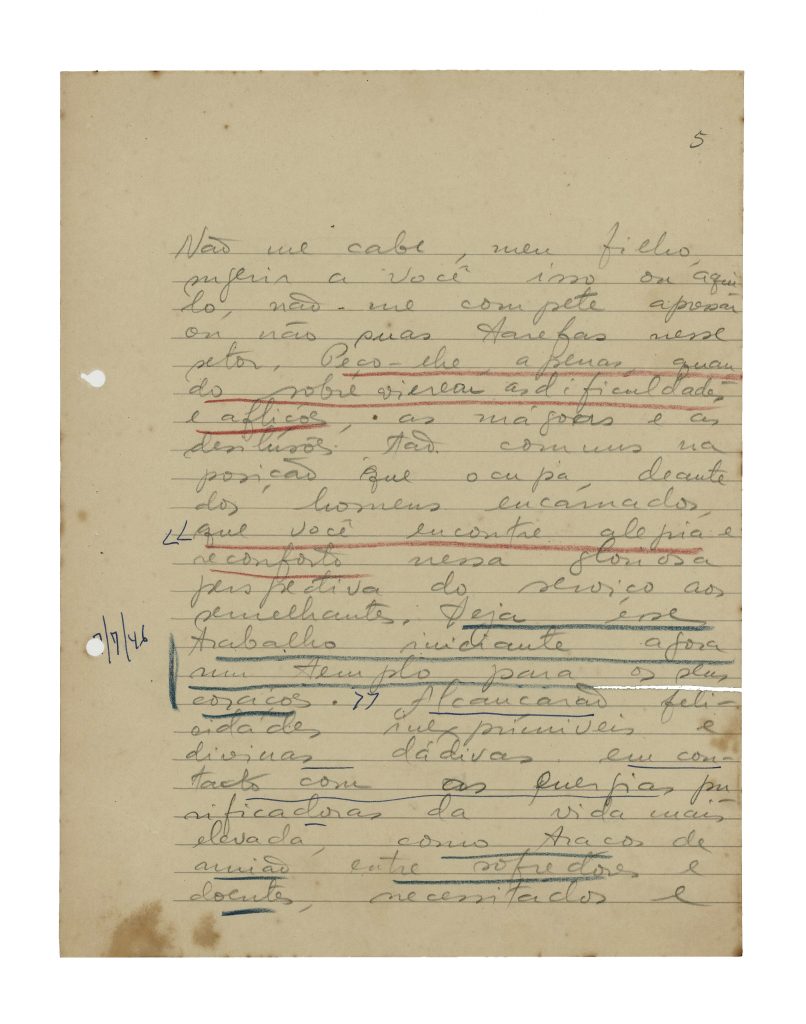 5
Não me cabe, meu filho,
sugerir a você isso ou aqui
lo, não me compete apressar
ou não suas tarefas nesse
setor. Peço-lhe, apenas, quan
do sobrevierem as dificuldades
e aflições, as mágoas e as
desilusões tão comuns na
posição que ocupa, deante
dos homens encarnados,
"que você encontre alegria e
reconforto nessa gloriosa
perspectiva do serviço aos
semelhantes. Seja ésse
7/7/46
trabalho iniciante agora
um templo para os seus
corações." Alcançarão feli-
cidades inexprimíveis e
divinas dádivas em con-
tacto com as energias pu
rificadoras da vida mais
elevada, como traços de
união entre sofredores e
doentes, necessitados e